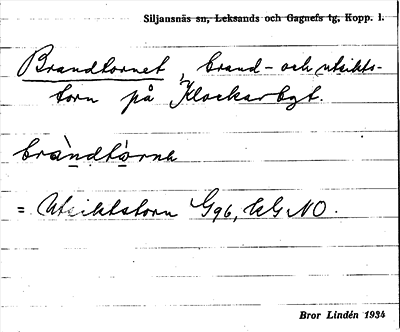 Siljansnäs sn, Leksands och Gagnefs tg, Kopp. l.
Brandtornet, brand- och utsikts-
torn på Klockarbgt.
bràndtò̱rnə
= Utsiktstorn G96, kG NO.
Bror Lindén 1934